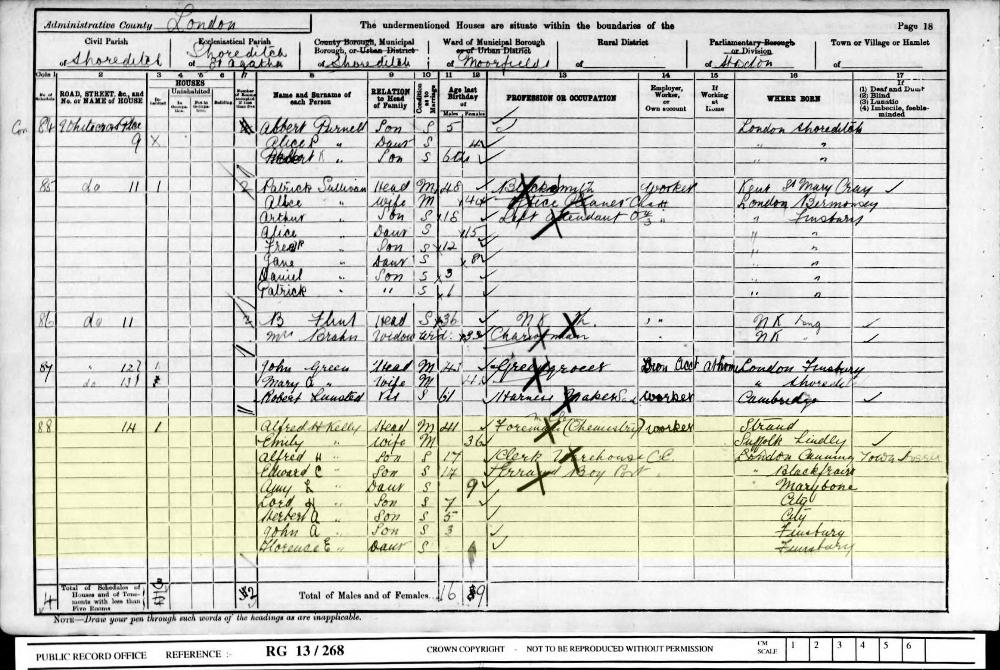 Administrative County London
The undermentioned Houses are situate within the boundaries of the
Page 18
Civil Parish of Shoreditch
Ecclesiastical Parish of Shoreditch St Agatha
County Borough, Municipal Borough, or Urban District of Shoreditch
Ward of Municipal Borough or of Urban District of Moorfields
Rural District of
Parliamentary Borough or Division of Hoxton
Town or Village or Hamlet of
Cols 1 2 3 4 5 6 7 8 9 10 11 12 13 14 15 16 17
No. of Schedule
ROAD, STREET, &c., and No. or NAME of HOUSE
HOUSES
Inhabited
Uninhabited
In Occupation
Not in Occupation
Building
Name and Surname of each Person
RELATION to Head of Family
Condition as to Marriage
Age last Birthday of
Males Females
PROFESSION OR OCCUPATION
Employer, Worker, or Own account
If Working at Home
WHERE BORN
If
(1) Deaf and Dumb
(2) Blind
(3) Lunatic
(4) Imbecile, feeble-minded
84 Whitecross Place Albert Purnell Son S 5 London Shoreditch
9 X Alice P " Daur S 4 " "
Son S " "
85 do 11 1 2 Patrick Sullivan Head M 48 Blacksmith Worker Kent St Mary Cray
Alice " Wife M 44 Office Cleaner London Bermonsey
Arthur " Son S 18 Lift Attendant " Finsbury
Alice " Daur S 15 " "
Fredk " Son S 12 " "
Jane " Daur S 8 " "
Daniel " Son S 3 " "
Patrick " " S 1 " "
86 do 11 2 B Flint Head S 36 N K " NK
Mrs Brahn Widow Wid 33 Charwoman NK "
87 " 12 1 John Green Head M 43 Greengrocer Own Acct At home London Finsbury
do 13 Mary " Wife M " Shoredit
Robert Lunsted Vis S 61 Harness Maker Worker Cambridge
88 14 1 Alfred H Kelly Head M 41 Foreman (Chemistry) Worker Strand
Emily " Wife M 36 Suffolk Lindley
Alfred H " Son S 17 Clerk Warehouse London Canning Town
Edward C " Son S 14 Errand Boy " Blackfriars
Amy L " Daur S 9 " Marybone
H " Son S 7 City
Herbert A " Son S 5 City
John A " Son S 3 Finsbury
Florence E " Daur S Finsbury
4 Total of Schedules of Houses and of Tenements with less than Five Rooms
Total of Males and of Females... 16 9
NOTE—Draw your pen through such words of the headings as are inapplicable.
PUBLIC RECORD OFFICE REFERENCE :- RG 13/268 CROWN COPYRIGHT - NOT TO BE REPRODUCED WITHOUT PERMISSION CM SCALE 1 2 3 4 5 6